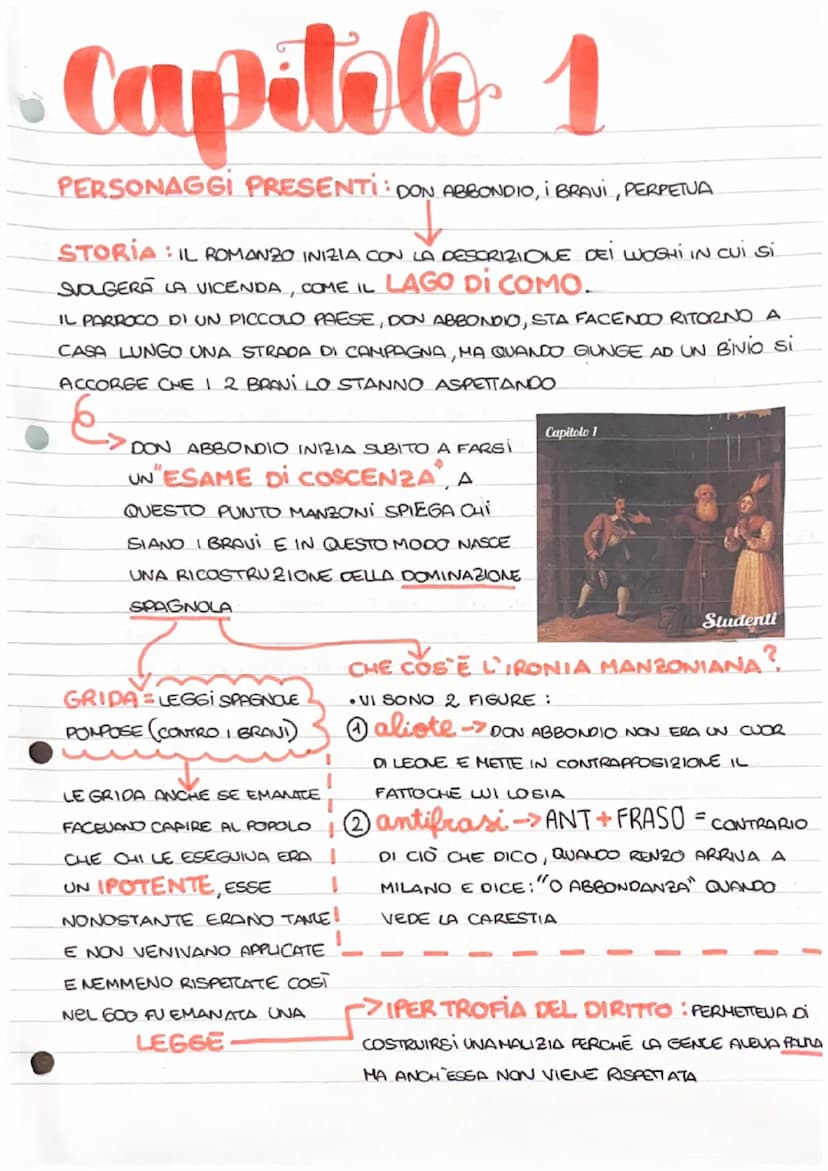 capitolo 1
PERSONAGGI PRESENTI: DON ABBONDIO, i BRAVI, PERPETUA
STORIA: IL ROMANZO INIZIA CON LA DESCRIZIONE DEI LUOGHI IN CUI SI
SVOLGERÀ LA VICENDA, COME IL LAGO DI COMO.
IL PARROCO DI UN PICCOLO PAESE, DON ABBONDIO, STA FACENDO RITORNO A
CASA LUNGO UNA STRADA DI CAMPAGNA, MA QUANDO GIUNGE AD UN BIVIO SI
ACCORGE CHE I 2 BRAVI LO STANNO ASPETTANDO
DON ABBONDIO INIZIA SUBITO A FARSI
UN "ESAME DI COSCENZA", A
QUESTO PUNTO MANZONI SPIEGA CHI
SIANO I BRAVI E IN QUESTO MODO NASCE
UNA RICOSTRUZIONE DELLA DOMINAZIONE
SPAGNOLA
Capitolo 1
Studenti
GRIDA = LEGGI SPAGNOLE
POMPOSE (CONTRO I BRAVI)
LE GRIDA ANCHE SE EMANATE
FACEVANO CAPIRE AL POPOLO
CHE CHI LE ESEGUIVA ERA
UN IPOTENTE, ESSE
NONOSTANTE ERANO TANTE
E NON VENIVANO APPLICATE
E NEMMENO RISPETTATE COSÌ
NEL 600 FU EMANATA UNA
LEGGE
CHE COS'È L'IRONIA MANZONIANA?
• VI SONO 2 FIGURE:
1 aliote -> DON ABBONDIO NON ERA UN CUOR
DI LEONE E METTE IN CONTRAPPOSIZIONE IL
FATTO CHE LUI LO SIA
2 antifrasi -> ANT + FRASO = CONTRARIO
DI CIÒ CHE DICO, QUANDO RENZO ARRIVA A
MILANO E DICE: "O ABBONDANZA" QUANDO
VEDE LA CARESTIA
IPERTROFIA DEL DIRITTO: PERMETTEVA DI
COSTRUIRSI UNA MALIZIA PERCHÉ LA GENTE AVEVA PAURA
MA ANCH'ESSA NON VIENE RISPETTATA